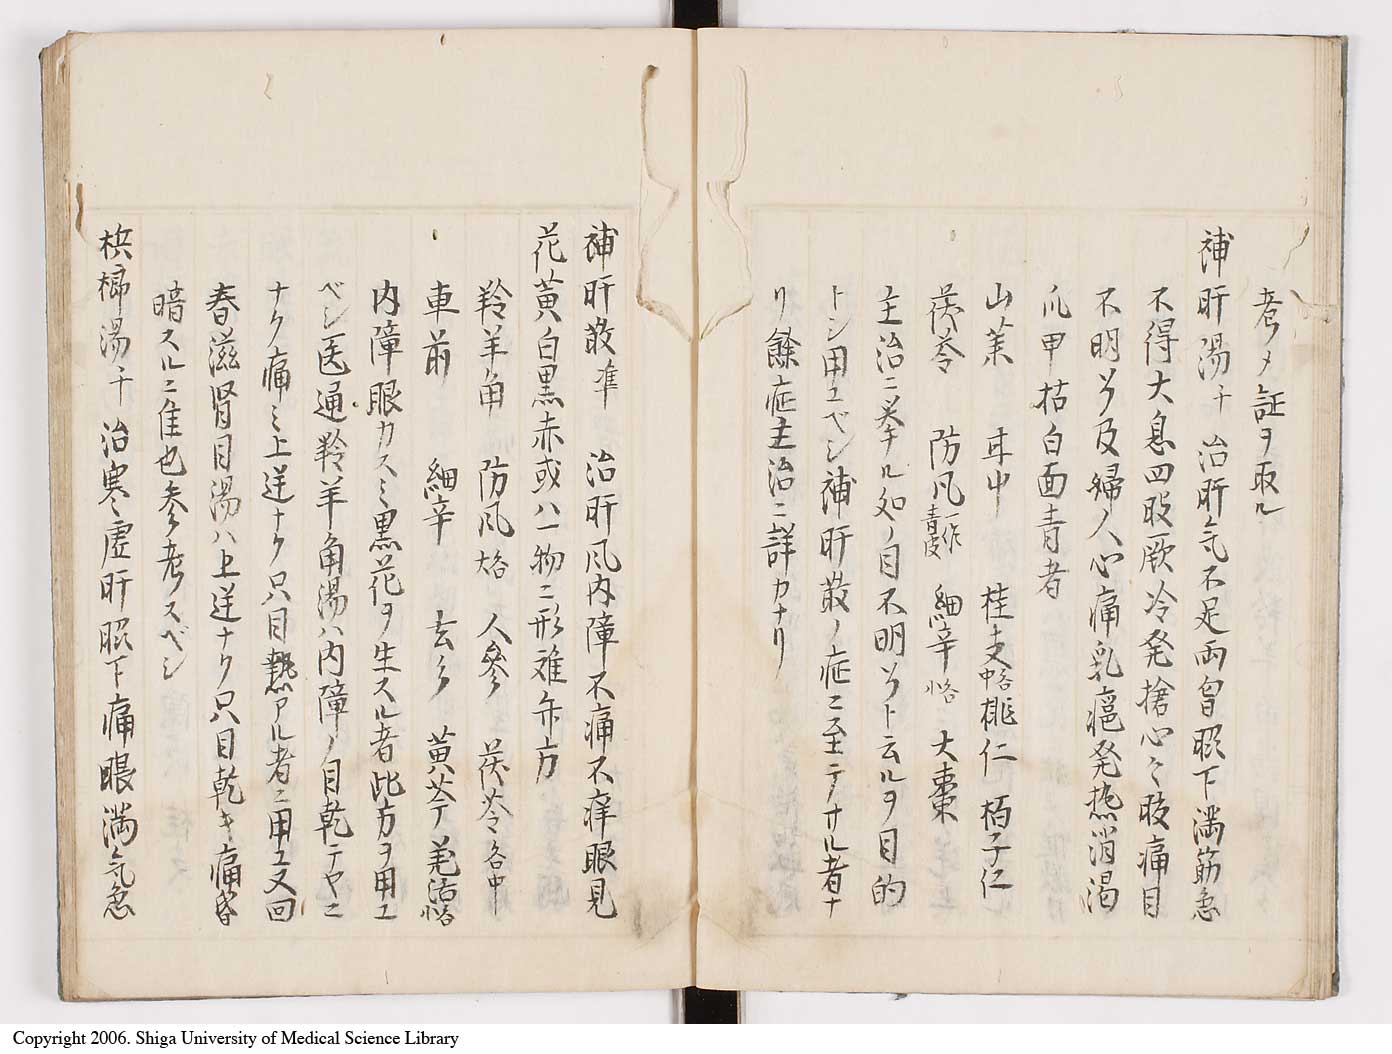 考メ証ヲ取ル
補肝湯千 治肝气不足両脅暇下満筋急
不得大息四肢厥冷発搶心々腹痛目
不明了及婦人心痛乳癰発熱消渇
爪甲枯白面青者
山茱 耳中 桂支中各 桃仁 栢子仁
茯苓 防凡一作青皮 細辛小各 大棗
主治ニ挙ル如ノ目不明了ト云ルヲ目的
トシ用ユベシ補肝散ノ症ニ至テナル者ナ
リ餘症主治ニ詳カナリ
補肝散準 治肝风内障不痛不痒眼見
花黄白黒赤或ハ一物ニ形難弁方
羚羊角 防风大各 人參 茯苓各中
車前 細辛 玄參 黄芩 羌活小各
内障眼カスミ黒花ヲ生スル者此方ヲ用ユ
ベシ医通羚羊角湯ハ内障ノ目乾テヤニ
ナク痛ミ上逆ナク只目熱アル者ニ用ユ又回
春滋腎目湯ハ上逆ナク只目乾キ痛昏
暗スルニ隹也参考スベシ
檳榔湯千 治寒々虚肝暇下痛眼満气急